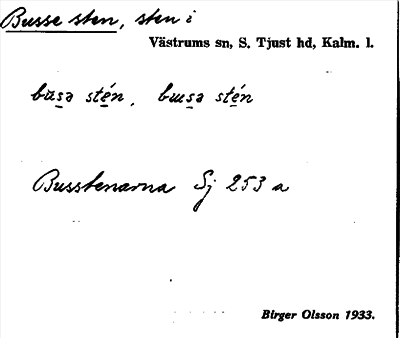 Busse sten, sten i
Västrums sn, S. Tjust hd, Kalm. l.
bu̇sə stén, bɯsə stén
Busstenarna Sj 253 a
Birger Olsson 1933.